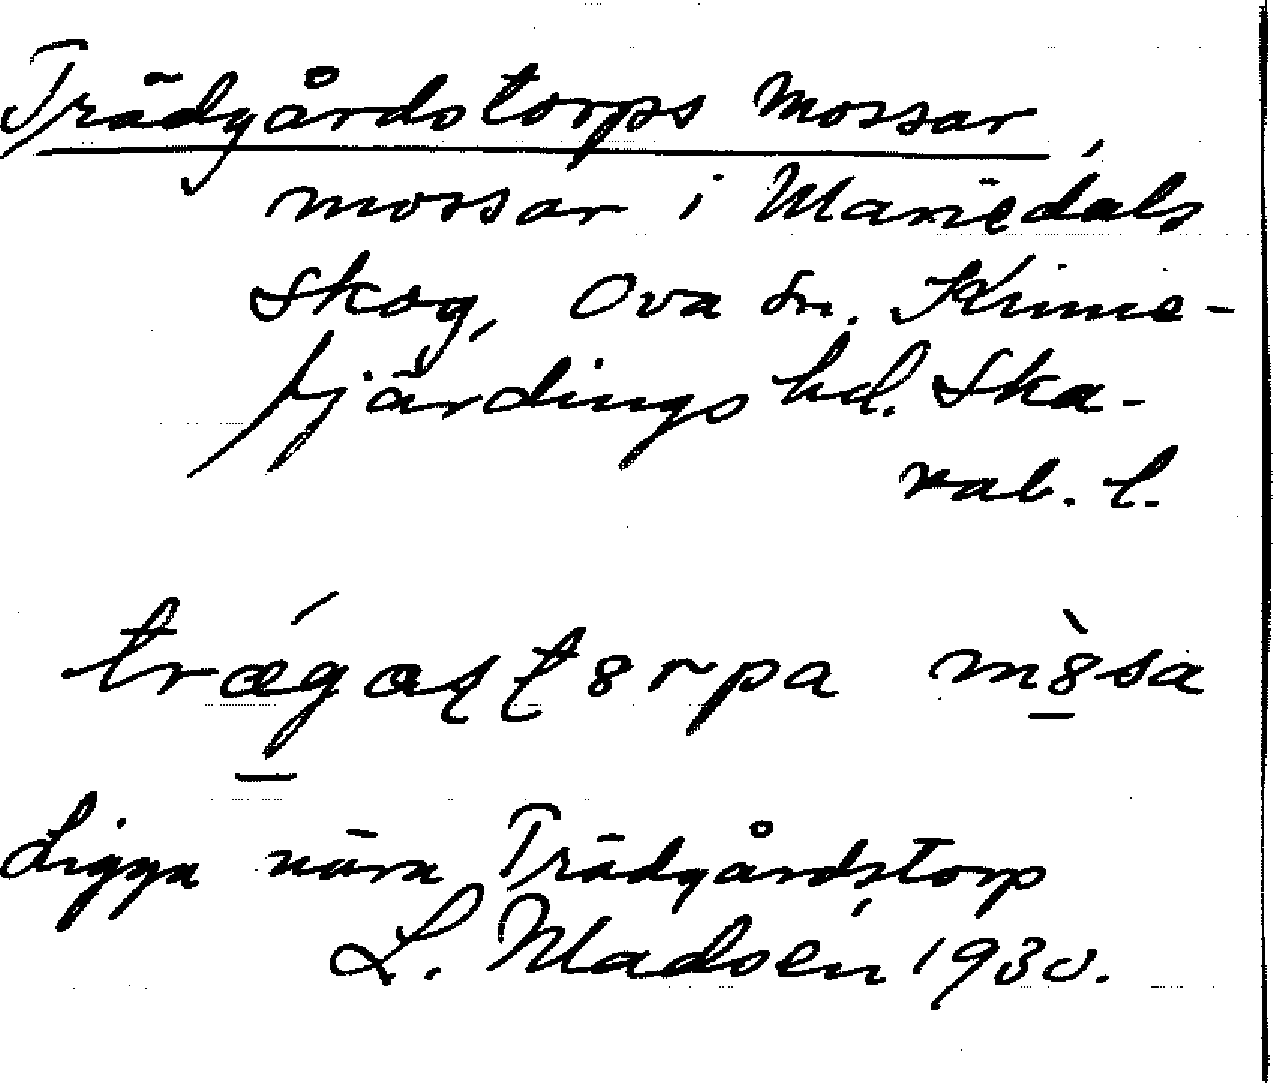 Trädgårdstorps Mossar,
mossar i Mariedals
Skog, Ova sn. Kinne-
fjärdings hd. Ska-
rab. l.
trægaʂʈɞrpa mɞ̀sa
Ligga nära Trädgårdstorp
L. Madsén 1930.